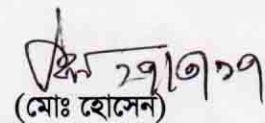 ২৭/৩/১৭
(মোঃ হোসেন)